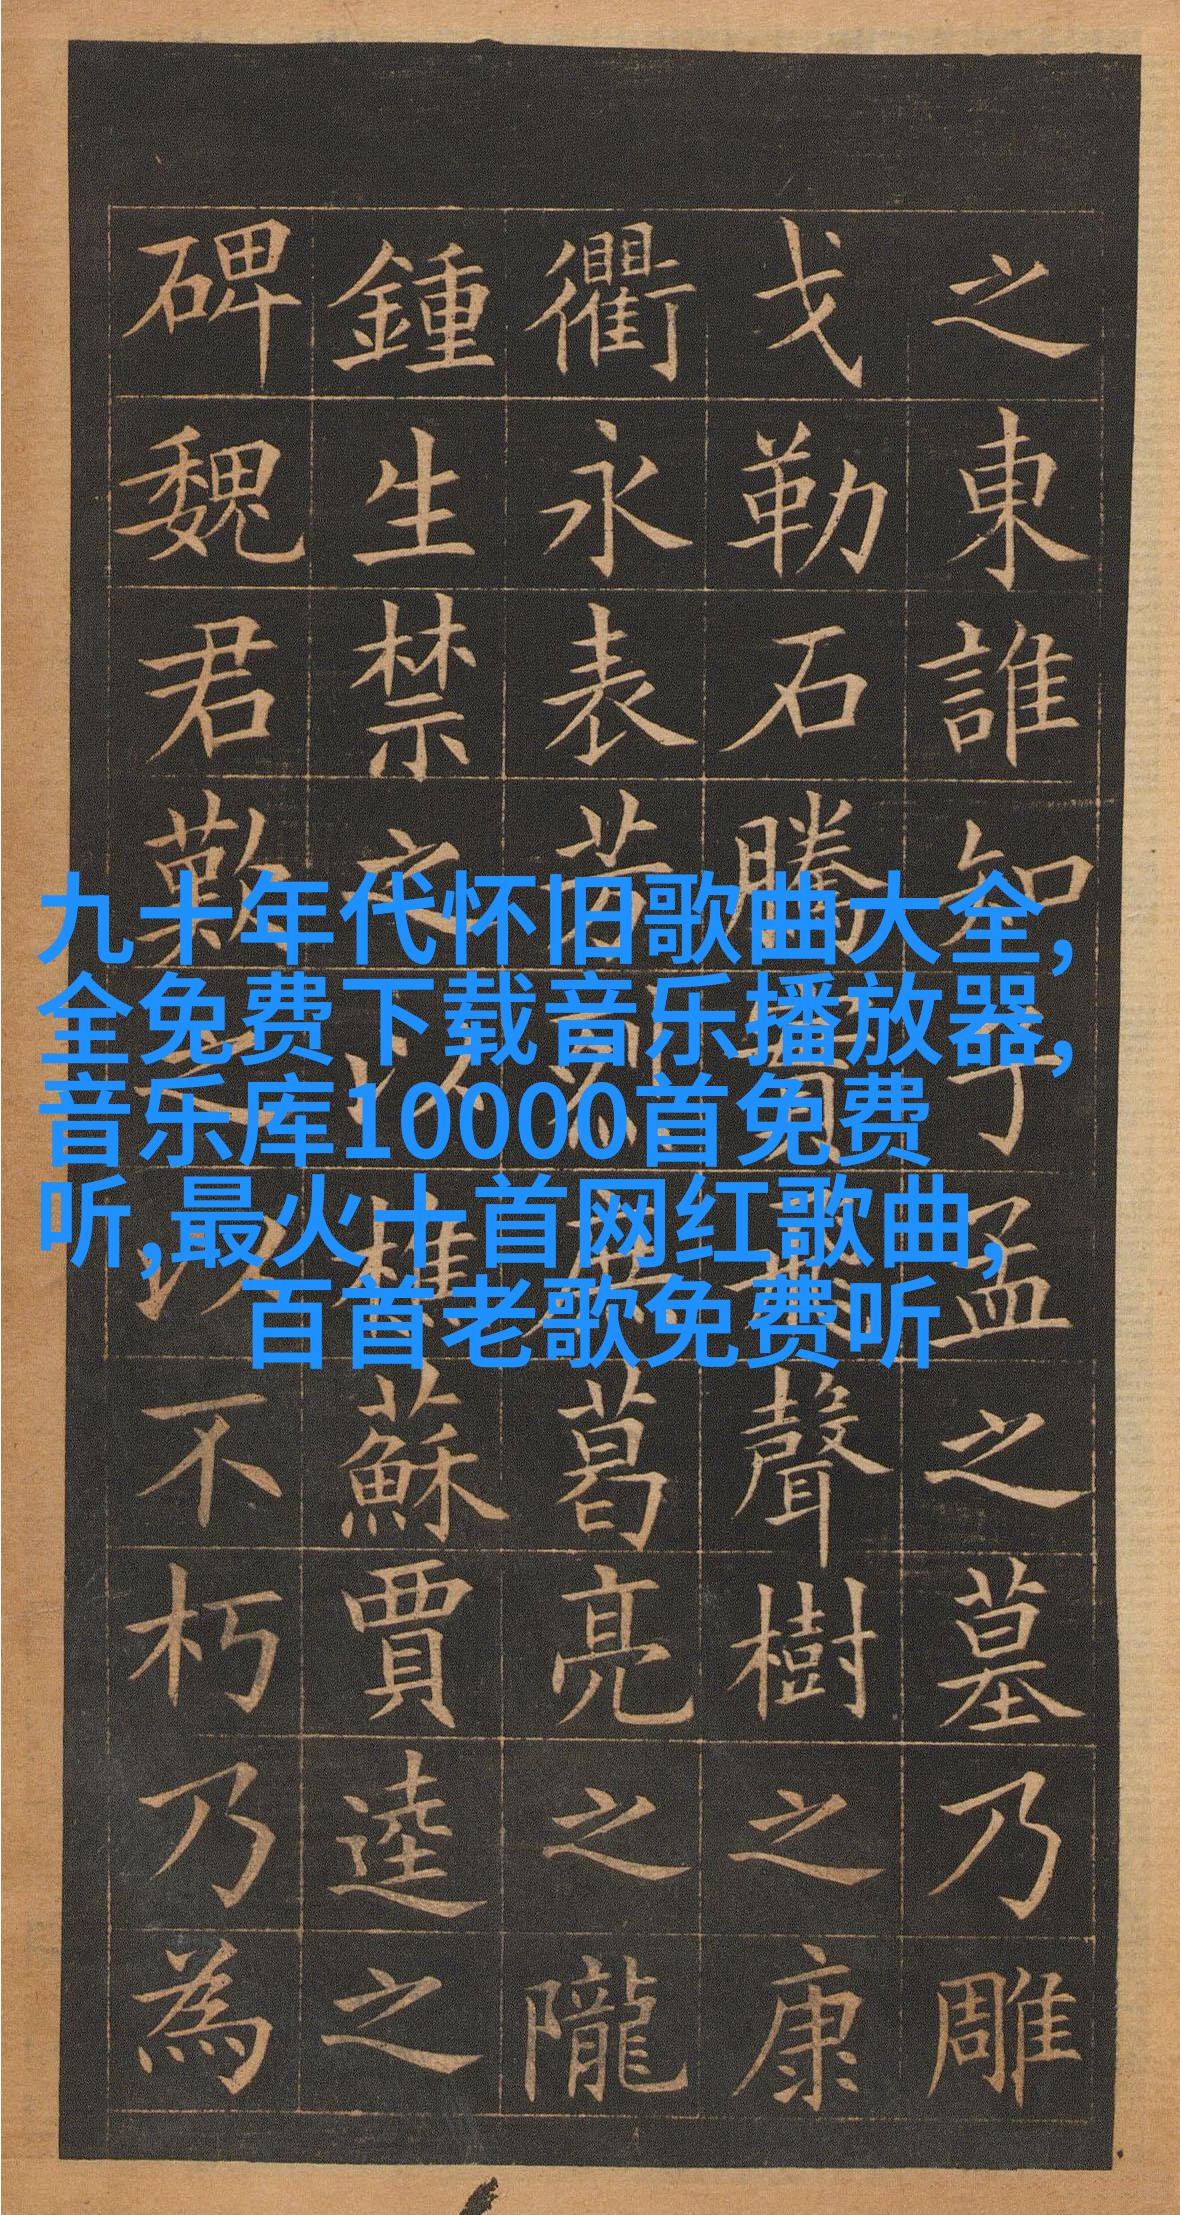 之東誰知丁孟之墓乃雕
戈勒石騰實聲樹之康
衢永表芳烈庶葛亮之隴
鍾生禁之以樵蘇賈逵之
碑魏君歎之以不朽乃為
九十年代怀旧歌曲大全,
全免费下载音乐播放器,
音乐库10000首免费
听,最火十首网红歌曲,
百首老歌免费听